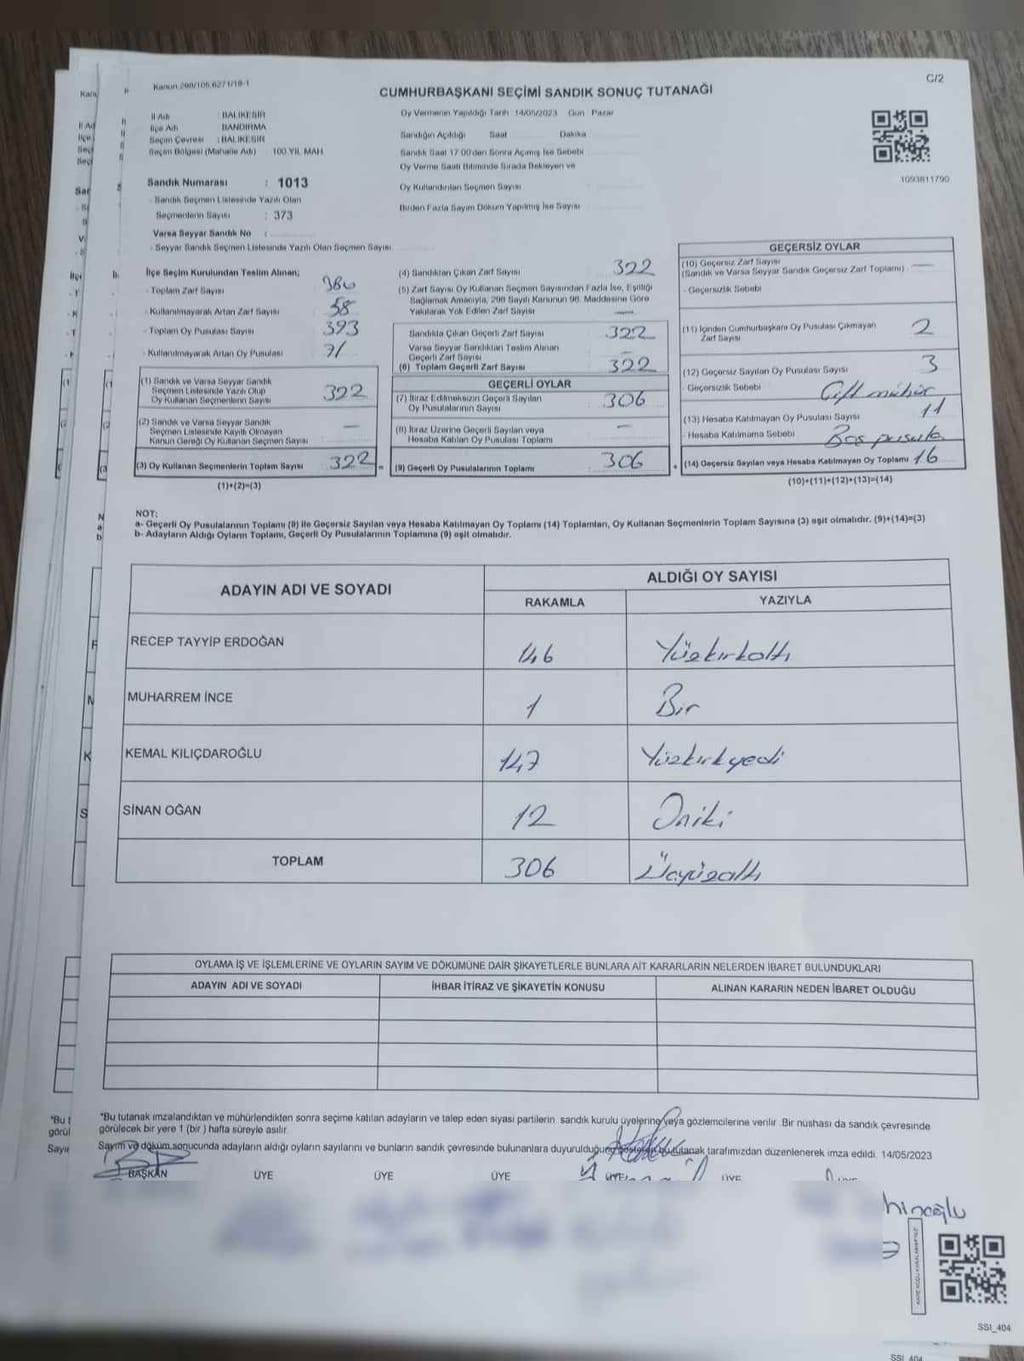 Kanun 298/105,6271/18-1
C/2
CUMHURBAŞKANI SEÇİMİ SANDIK SONUÇ TUTANAĞI
İl Adı : BALIKESİR
İlçe Adı : BANDIRMA
Seçim Çevresi : BALIKESİR
Seçim Bölgesi (Mahalle Adı) : 100.YIL MAH.
Sandık Numarası : 1013
- Sandık Seçmen Listesinde Yazılı Olan
Seçmenlerin Sayısı : 373
Varsa Seyyar Sandık No :
- Seyyar Sandık Seçmen Listesinde Yazılı Olan Seçmen Sayısı
Oy Vermenin Yapıldığı Tarih 14/05/2023 Gün Pazar
Sandığın Açıldığı Saat Dakika
Sandık Saat 17:00'den Sonra Açılmış İse Sebebi
Oy Verme Saati Bitiminde Sırada Bekleyen ve
Oy Kullandırılan Seçmen Sayısı
Birden Fazla Sayım Döküm Yapılmış İse Sayısı
1093811790
İlçe Seçim Kurulundan Teslim Alınan;
- Toplam Zarf Sayısı 380
- Kullanılmayarak Artan Zarf Sayısı 58
- Toplam Oy Pusulası Sayısı 393
- Kullanılmayarak Artan Oy Pusulası 71
(1) Sandık ve Varsa Seyyar Sandık
Seçmen Listesinde Yazılı Olup
Oy Kullanan Seçmenlerin Sayısı 322
(2) Sandık ve Varsa Seyyar Sandık
Seçmen Listesinde Kayıtlı Olmayan
Kanun Gereği Oy Kullanan Seçmen Sayısı —
(3) Oy Kullanan Seçmenlerin Toplam Sayısı 322
(1)+(2)=(3)
(4) Sandıktan Çıkan Zarf Sayısı 322
(5) Zarf Sayısı Oy Kullanan Seçmen Sayısından Fazla İse, Eşitliği
Sağlamak Amacıyla, 298 Sayılı Kanunun 98. Maddesine Göre
Yakılarak Yok Edilen Zarf Sayısı —
Sandıkta Çıkan Geçerli Zarf Sayısı 322
Varsa Seyyar Sandıktan Teslim Alınan
Geçerli Zarf Sayısı —
(6) Toplam Geçerli Zarf Sayısı 322
GEÇERLİ OYLAR
(7) İtiraz Edilmeksizin Geçerli Sayılan
Oy Pusulalarının Sayısı 306
(8) İtiraz Üzerine Geçerli Sayılan veya
Hesaba Katılan Oy Pusulası Toplamı —
(9) Geçerli Oy Pusulalarının Toplamı 306
GEÇERSİZ OYLAR
(10) Geçersiz Zarf Sayısı —
(Sandık ve Varsa Seyyar Sandık Geçersiz Zarf Toplamı)
- Geçersizlik Sebebi
(11) İçinden Cumhurbaşkanı Oy Pusulası Çıkmayan
Zarf Sayısı 2
(12) Geçersiz Sayılan Oy Pusulası Sayısı 3
- Geçersizlik Sebebi Çift mühür
(13) Hesaba Katılmayan Oy Pusulası Sayısı 11
- Hesaba Katılmama Sebebi Boş pusula
(14) Geçersiz Sayılan veya Hesaba Katılmayan Oy Toplamı 16
(10)+(11)+(12)+(13)=(14)
NOT:
a- Geçerli Oy Pusulalarının Toplamı (9) ile Geçersiz Sayılan veya Hesaba Katılmayan Oy Toplamı (14) Toplamları, Oy Kullanan Seçmenlerin Toplam Sayısına (3) eşit olmalıdır. (9)+(14)=(3)
b- Adayların Aldığı Oyların Toplamı, Geçerli Oy Pusulalarının Toplamına (9) eşit olmalıdır.
ADAYIN ADI VE SOYADI
ALDIĞI OY SAYISI
RAKAMLA YAZIYLA
RECEP TAYYİP ERDOĞAN 146 Yüzkırkaltı
MUHARREM İNCE 1 Bir
KEMAL KILIÇDAROĞLU 147 Yüzkırkyedi
SİNAN OĞAN 12 Oniki
TOPLAM 306 Üçyüzaltı
OYLAMA İŞ VE İŞLEMLERİNE VE OYLARIN SAYIM VE DÖKÜMÜNE DAİR ŞİKAYETLERLE BUNLARA AİT KARARLARIN NELERDEN İBARET BULUNDUKLARI
ADAYIN ADI VE SOYADI İHBAR İTİRAZ VE ŞİKAYETİN KONUSU ALINAN KARARIN NEDEN İBARET OLDUĞU
*Bu tutanak imzalandıktan ve mühürlendikten sonra seçime katılan adayların ve talep eden siyasi partilerin sandık kurulu üyelerine veya gözlemcilerine verilir. Bir nüshası da sandık çevresinde
görülecek bir yere 1 (bir) hafta süreyle asılır.
Sayım ve döküm sonucunda adayların aldığı oyların sayılarını ve bunların sandık çevresinde bulunanlara duyurulduğunu tutanak tarafımızdan düzenlenerek imza edildi. 14/05/2023
BAŞKAN ÜYE ÜYE ÜYE ÜYE ÜYE
SSI_404
SSI_404